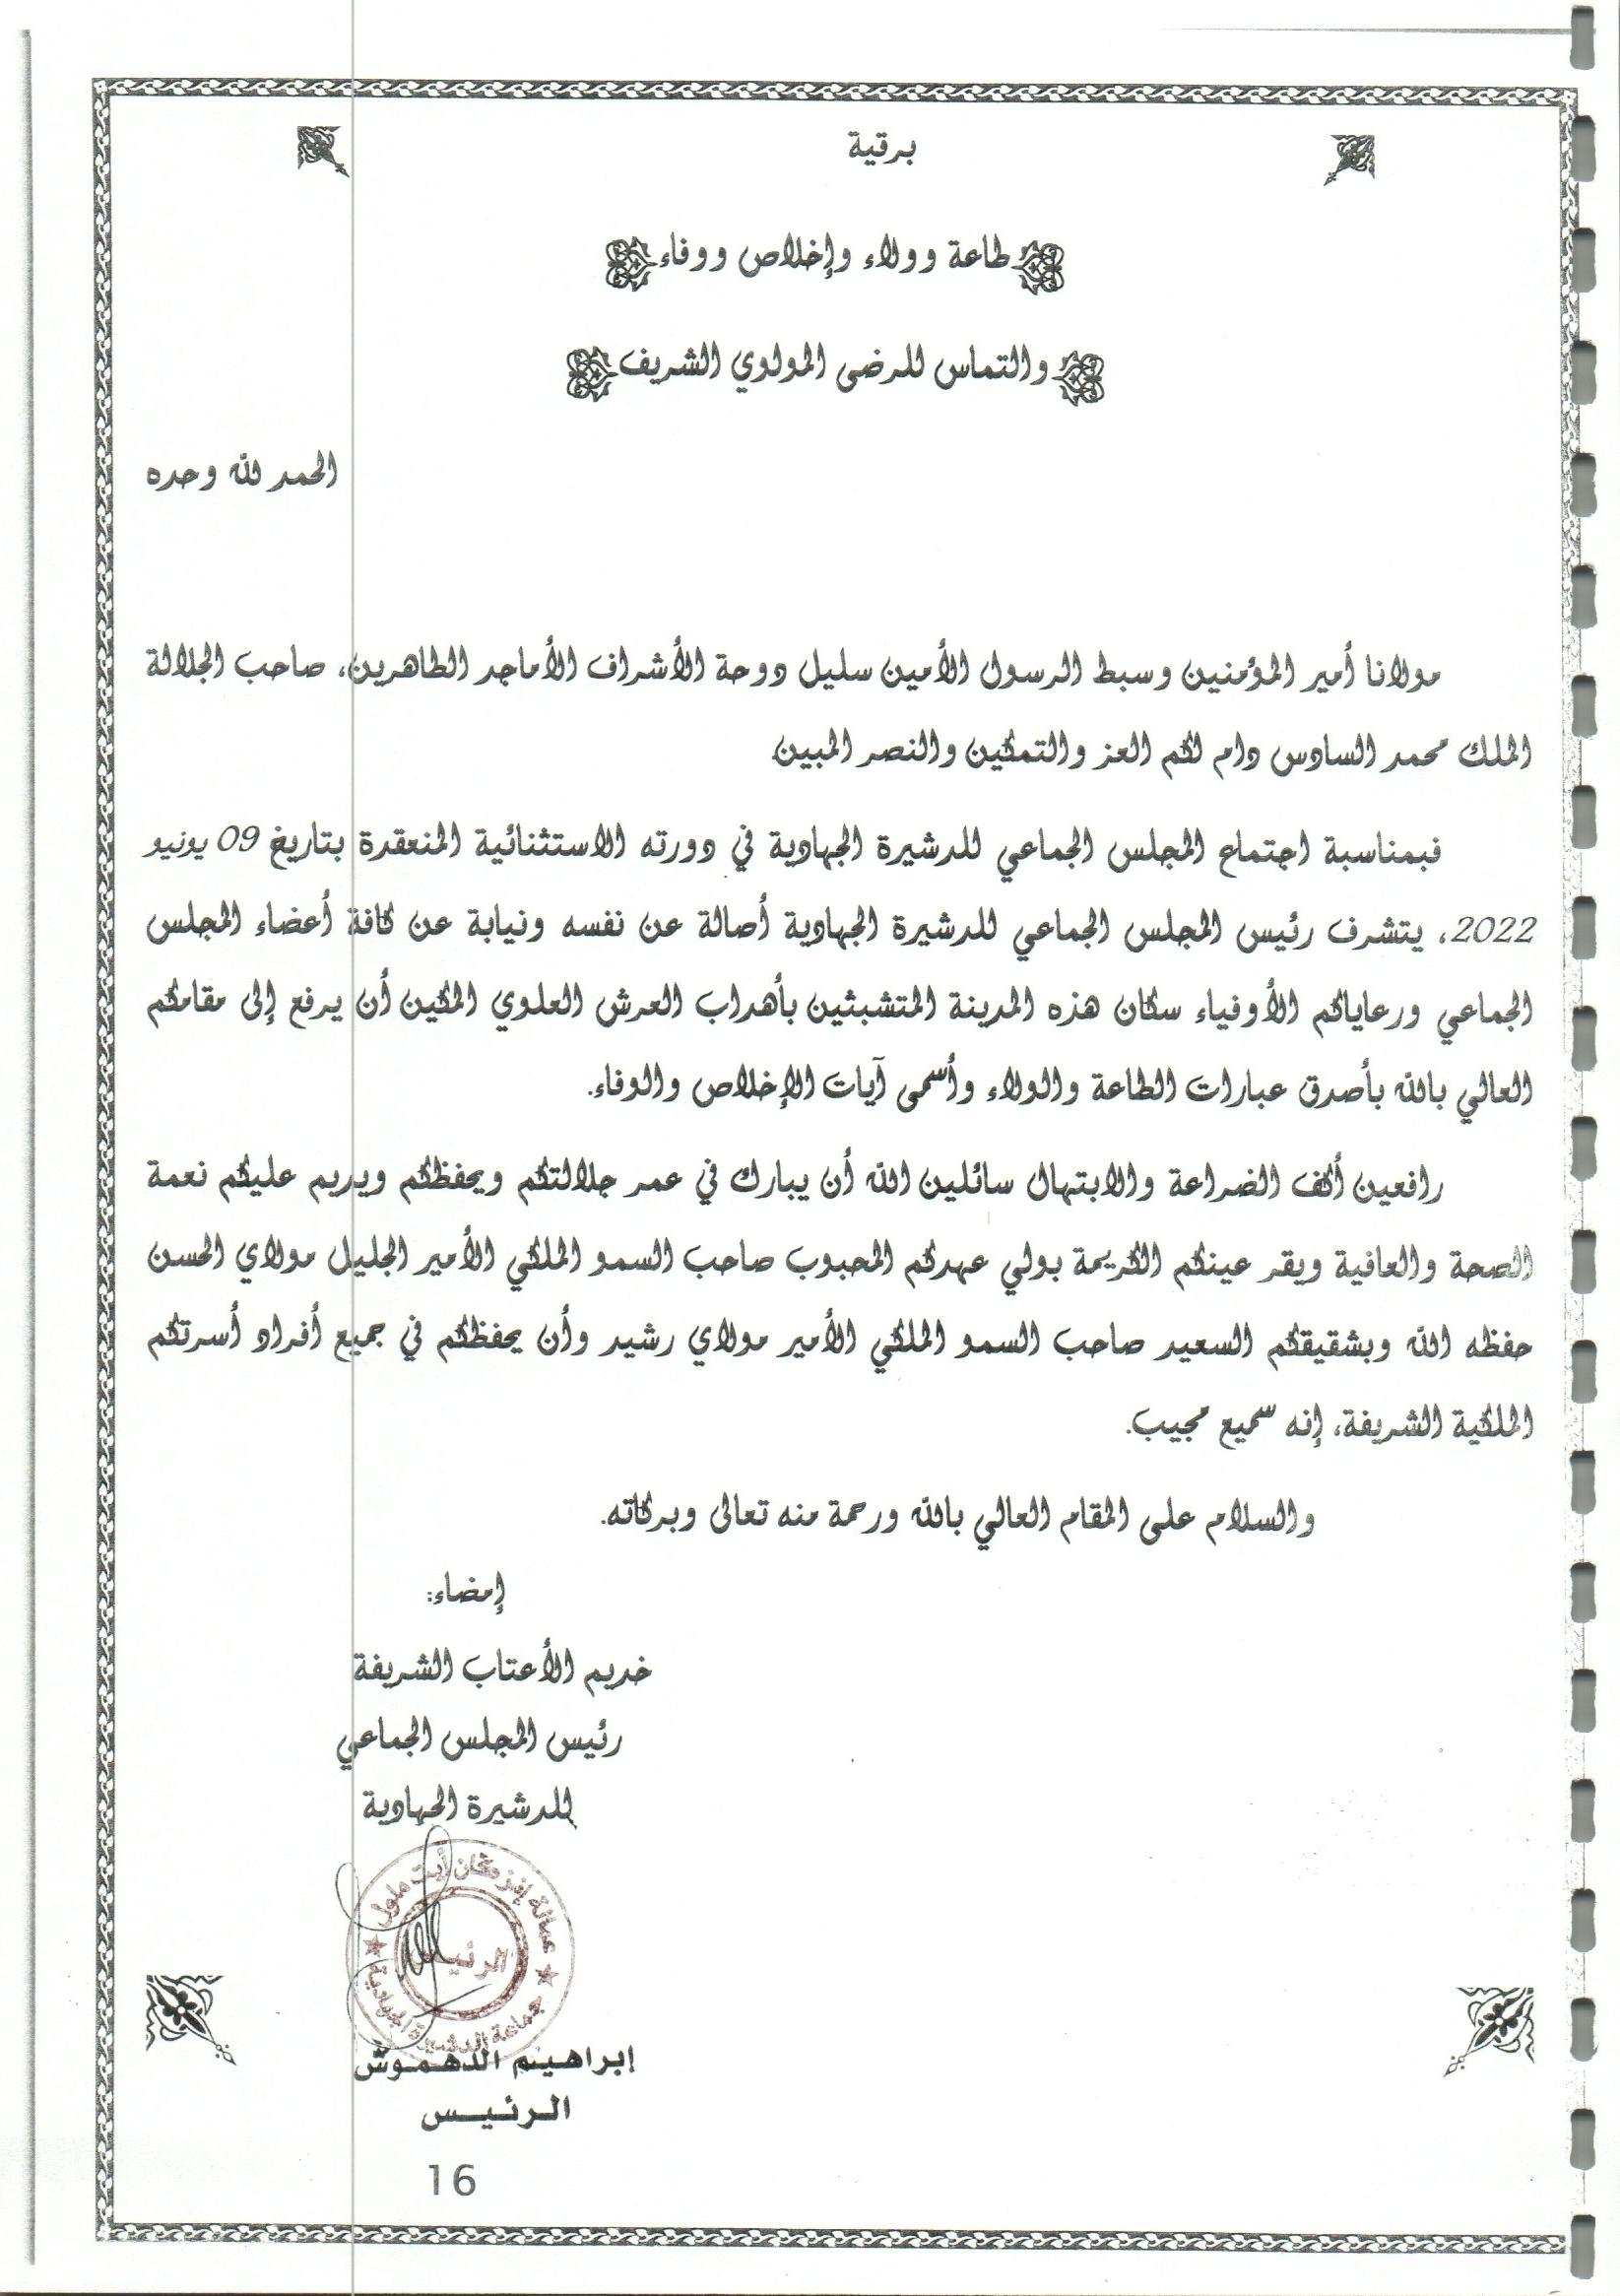 برقية
طاعة وولاء وإخلاص ووفاء
والتماس للرضى المولوي الشريف
الحمد لله وحده
مولانا أمير المؤمنين وسبط الرسول الأمين سليل دوحة الأشراف الأماجد الطاهرين، صاحب الجلالة
الملك محمد السادس دام لكم العز والتمكين والنصر المبين
فبمناسبة اجتماع المجلس الجماعي للدشيرة الجهادية في دورته الاستثنائية المنعقدة بتاريخ 09 يونيو
2022، يتشرف رئيس المجلس الجماعي للدشيرة الجهادية أصالة عن نفسه ونيابة عن كافة أعضاء المجلس
الجماعي ورعاياكم الأوفياء سكان هذه المدينة المتشبثين بأهداب العرش العلوي المكين أن يرفع إلى مقامكم
العالي بالله بأصدق عبارات الطاعة والولاء وأسمى آيات الإخلاص والوفاء.
رافعين أكف الضراعة والابتهال سائلين الله أن يبارك في عمر جلالتكم ويحفظكم ويديم عليكم نعمة
الصحة والعافية ويقر عينكم الكريمة بولي عهدكم المحبوب صاحب السمو الملكي الأمير الجليل مولاي الحسن
حفظه الله وبشقيقكم السعيد صاحب السمو الملكي الأمير مولاي رشيد وأن يحفظكم في جميع أفراد أسرتكم
الملكية الشريفة، إنه سميع مجيب.
والسلام على المقام العالي بالله ورحمة منه تعالى وبركاته.
إمضاء:
خديم الأعتاب الشريفة
رئيس المجلس الجماعي
للدشيرة الجهادية
عمالة إنزكان أيت ملول
الرئيس
جماعة الدشيرة الجهادية
إبراهيم الدهموش
الرئيس
16